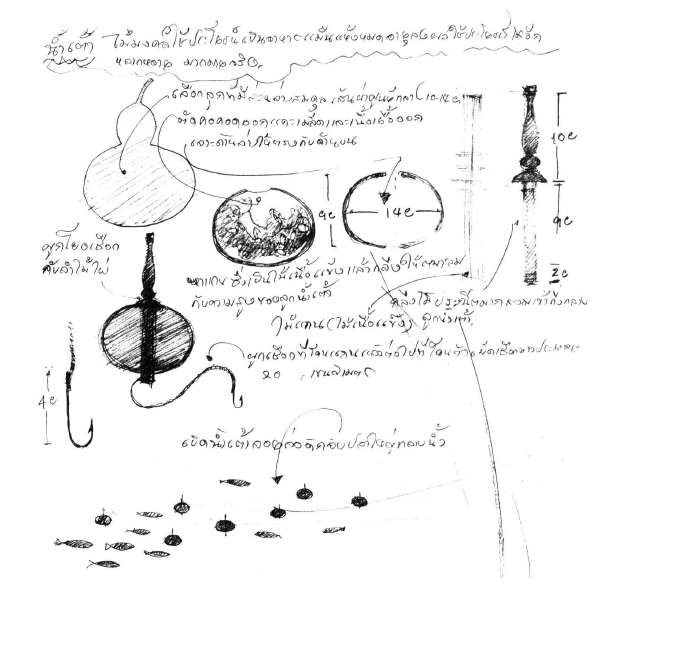 น้ำเต้า ไม้มงคลใช้ประโยชน์ เป็นอาหาร แข็ง ใช้ประโยชน์ได้อีก
หลากหลาย มากมายจริงๆ
เลือกลูกที่มีส่วนล่างสมดุล เส้นผ่าศูนย์กลาง 10-12 ซ.
ตัดคอคอดออก แคะเมล็ดและเนื้อออก
เจาะด้านล่างให้ตรงกับด้านบน
10 ซ
9 ซ
14 ซ
9 ซ
2 ซ
ผูกโยงเชือก
กับลำไม้ไผ่
ซึ่งเป็นไม้เนื้อแข็ง แล้วกลึงให้
กับความสูงของลูกน้ำเต้า
กลึงไม้ สวมเข้ากึ่งกลาง
ไม้แกน (ไม้เนื้อแข็ง) ลูกน้ำเต้า
ผูกเชือกที่โคนแกนแล้วต่อไปที่โคนตัวเบ็ดเชือกยาวประมาณ
20 เซนติเมตร
4 ซ
เบ็ดน้ำเต้าลอยล่อดักจับปลาใหญ่กลางน้ำ